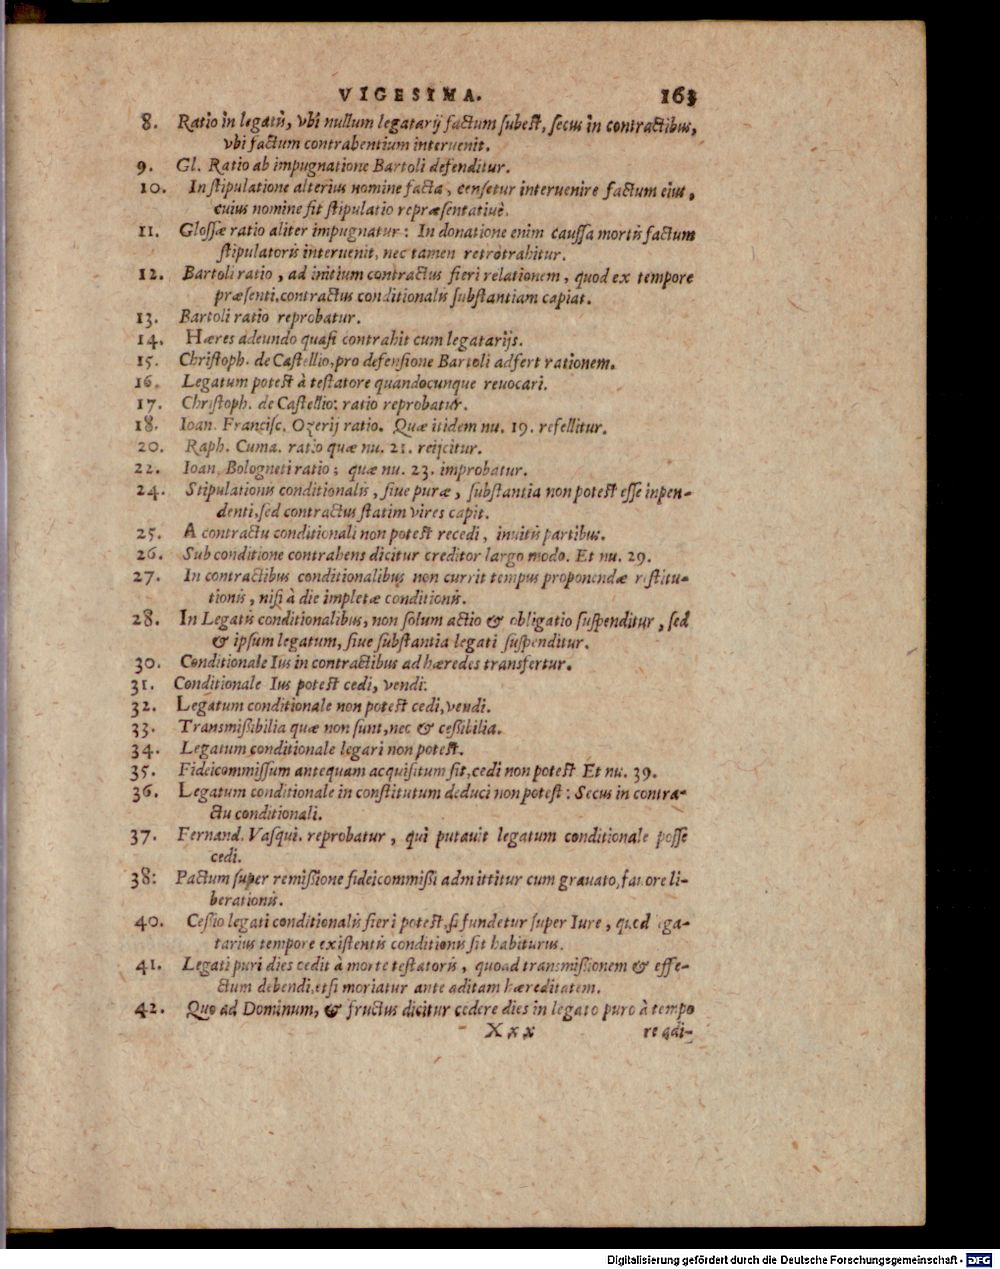 VIGESIMA. 163
8. Ratio in legatis, vbi nullum legatarij factum subest, secus in contractibus,
vbi factum contrahentium interuenit.
9. Gl. Ratio ab impugnatione Bartoli defenditur.
10. In stipulatione alterius nomine facta, censetur interuenire factum eius,
cuius nomine fit stipulatio repræsentatiuè.
11. Glossæ ratio aliter impugnatur: In donatione enim caussa mortis factum
stipulatoris interuenit, nec tamen retrotrahitur.
12. Bartoli ratio, ad initium contractus fieri relationem, quod ex tempore
præsenti, contractus conditionalis substantiam capiat.
13. Bartoli ratio reprobatur.
14. Hæres adeundo quasi contrahit cum legatarijs.
15. Christoph. de Castellio, pro defensione Bartoli adfert rationem.
16. Legatum potest à testatore quandocunque reuocari.
17. Christoph. de Castellio: ratio reprobatur.
18. Ioan. Francisc. Ozerij ratio. Quæ itidem nu. 19. refellitur.
20. Raph. Cuma. ratio quæ nu. 21. reijcitur.
22. Ioan. Bologneti ratio; quæ nu. 23. improbatur.
24. Stipulationis conditionalis, siue puræ, substantia non potest esse inpen-
denti, sed contractus statim vires capit.
25. A contractu conditionali non potest recedi, inuitis partibus.
26. Sub conditione contrahens dicitur creditor largo modo. Et nu. 29.
27. In contractibus conditionalibus non currit tempus proponendæ restitu-
tionis, nisi à die impletæ conditionis.
28. In Legatis conditionalibus, non solum actio & obligatio suspenditur, sed
& ipsum legatum, siue substantia legati suspenditur.
30. Conditionale Ius in contractibus ad hæredes transfertur.
31. Conditionale Ius potest cedi, vendi.
32. Legatum conditionale non potest cedi, vendi.
33. Transmissibilia quæ non sunt, nec & cessibilia.
34. Legatum conditionale legari non potest.
35. Fideicommissum antequam acquisitum sit, cedi non potest Et nu. 39.
36. Legatum conditionale in constitutum deduci non potest: Secus in contra-
ctu conditionali.
37. Fernand. Vasqui. reprobatur, qui putauit legatum conditionale posse
cedi.
38: Pactum super remissione fideicommissi admittitur cum grauato, fauore li-
berationis.
40. Cessio legati conditionalis fieri potest, si fundetur super Iure, quod lega-
tarius tempore existentis conditionis sit habiturus.
41. Legati puri dies cedit à morte testatoris, quoad transmissionem & effe-
ctum debendi, etsi moriatur ante aditam hæreditatem.
42. Quo ad Dominum, & fructus dicitur cedere dies in legato puro à tempo
Xxx re adi-
Digitalisierung gefördert durch die Deutsche Forschungsgemeinschaft - DFG